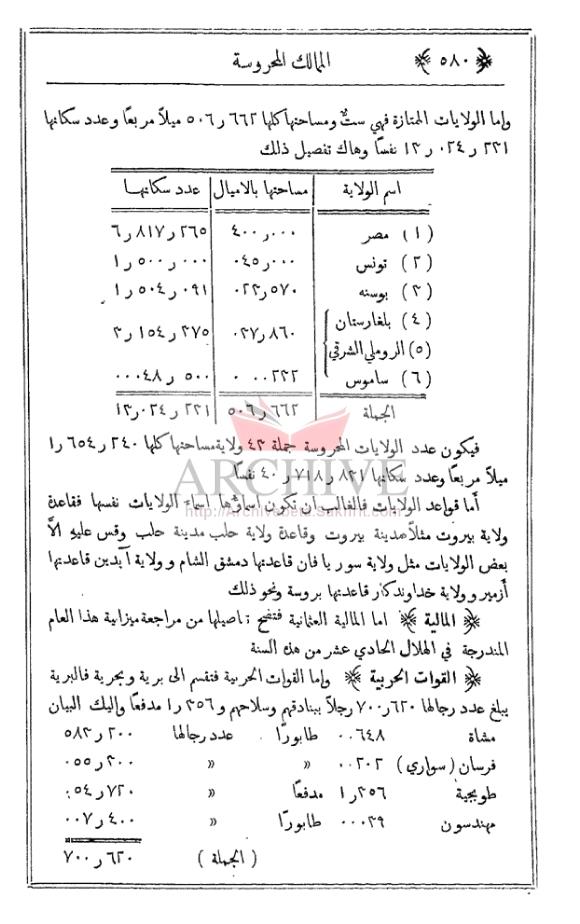 ﴿ ٥٨٠ ﴾ الممالك المحروسة
واما الولايات الممتازة فهي ستٌّ ومساحتها كلها ٦٦٢ ر ٥٠٦ ميلاً مربعًا وعدد سكانها
٢٣١ ر ٠٢٤ ر ١٣ نفسًا وهاك تفصيل ذلك
اسم الولاية مساحتها بالاميال عدد سكانها
(١) مصر ٠٠٠ ر ٤٠٠ ٢٦٥ ر ٨١٧ ر ٦
(٢) تونس ٠٠٠ ر ٠٤٥ ٠٠٠ ر ٥٠٠ ر ١
(٣) بوسنه ٥٧٠ ر ٠٢٣ ٠٩١ ر ٥٠٤ ر ١
(٤) بلغارستان
(٥) الروملي الشرقي ٨٦٠ ر ٠٣٧ ٣٧٥ ر ١٥٤ ر ٣
(٦) ساموس ٠٠٠٢٣٢ ٥٠٠ ر ٠٠٠٤٨
الجملة ٦٦٢ ر ٥٠٦ ٢٣١ ر ٠٢٤ ر ١٣
فيكون عدد الولايات المحروسة جملة ٤٣ ولاية مساحتها كلها ٢٤٠ ر ٦٥٤ ر ١
ميلاً مربعًا وعدد سكانها ٨٣١ ر ٧١٨ ر ٤٠ نفسًا
أما قواعد الولايات فالغالب ان تكون اسماؤها اسماء الولايات نفسها فقاعدة
ولاية بيروت مثلاً مدينة بيروت وقاعدة ولاية حلب مدينة حلب وقس عليه الاَّ
بعض الولايات مثل ولاية سوريا فان قاعدتها دمشق الشام وولاية آيدين قاعدتها
أزمير وولاية خداوندكار قاعدتها بروسة ونحو ذلك
﴿ المالية ﴾ اما المالية العثمانية فتتضح تفاصيلها من مراجعة ميزانية هذا العام
المندرجة في الهلال الحادي عشر من هذه السنة
﴿ القوات الحربية ﴾ واما القوات الحربية فتقسم الى برية وبحرية فالبرية
يبلغ عدد رجالها ٦٢٠ ر ٧٠٠ رجلاً ببنادقهم وسلاحهم و ٣٥٦ ر ١ مدفعًا واليك البيان
مشاة ٠٠٦٤٨ طابورًا عدد رجالها ٢٠٠ ر ٥٨٣
فرسان (سواري) ٠٠٢٠٢ » » ٣٠٠ ر ٠٥٥
طوبجية ٣٥٦ ر ١ مدفعًا » ٧٢٠ ر ٠٥٤
مهندسون ٠٠٠٣٩ طابورًا » ٤٠٠ ر ٠٠٧
(الجملة) ٦٢٠ ر ٧٠٠
ARCHIVE
http://Archivebeta.Sakhrit.com